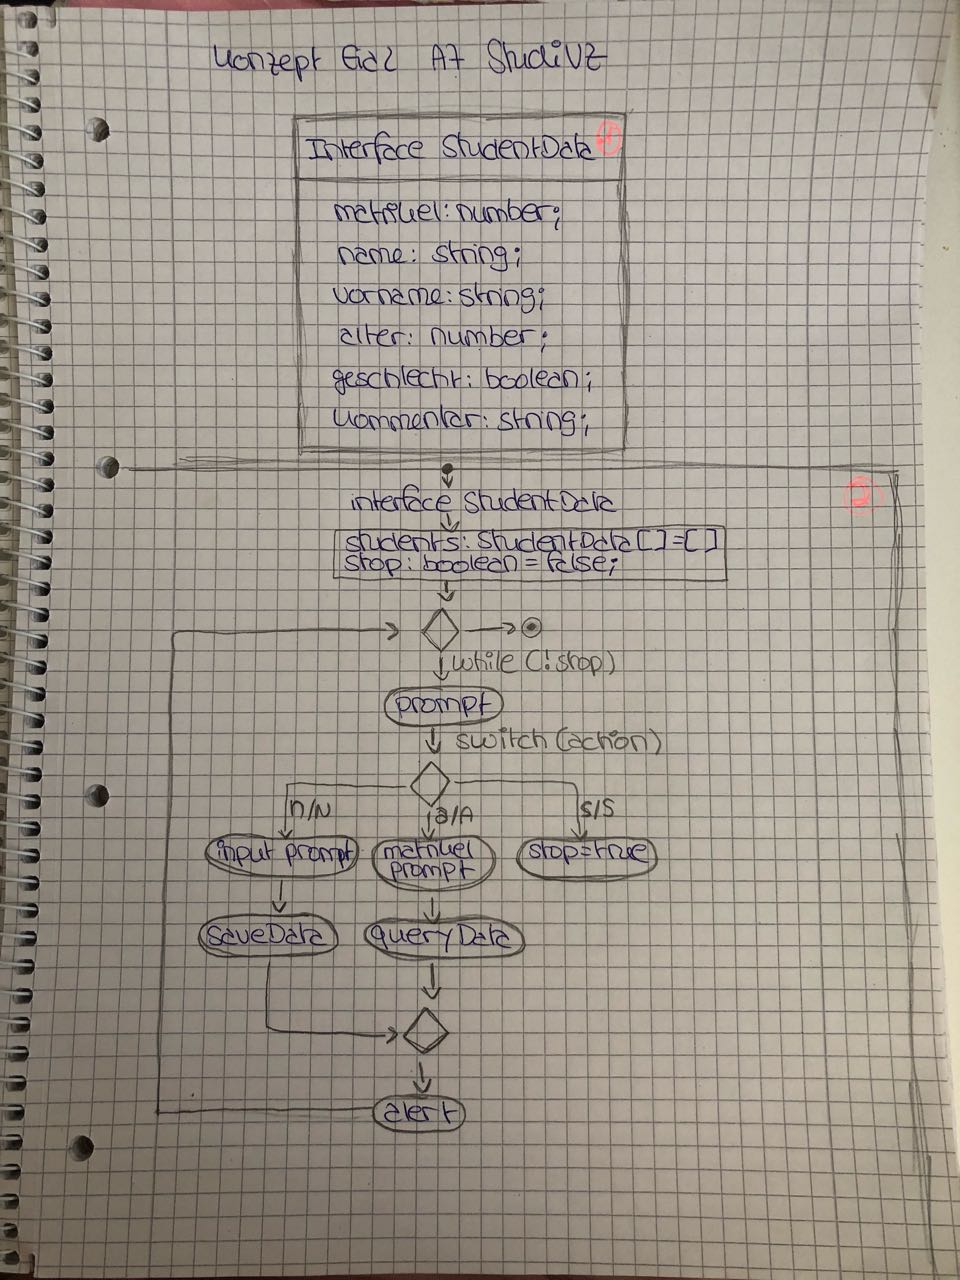 Konzept Eia2 A7 StudiVZ
Interface StudentData
1
matrikel: number;
name: string;
vorname: string;
alter: number;
geschlecht: boolean;
kommentar: string;
2
interface StudentData
students: StudentData[]=[]
stop: boolean = false;
while (!stop)
prompt
switch (action)
n/N
a/A
s/S
input prompt
matrikel
prompt
stop=true
saveData
queryData
alert